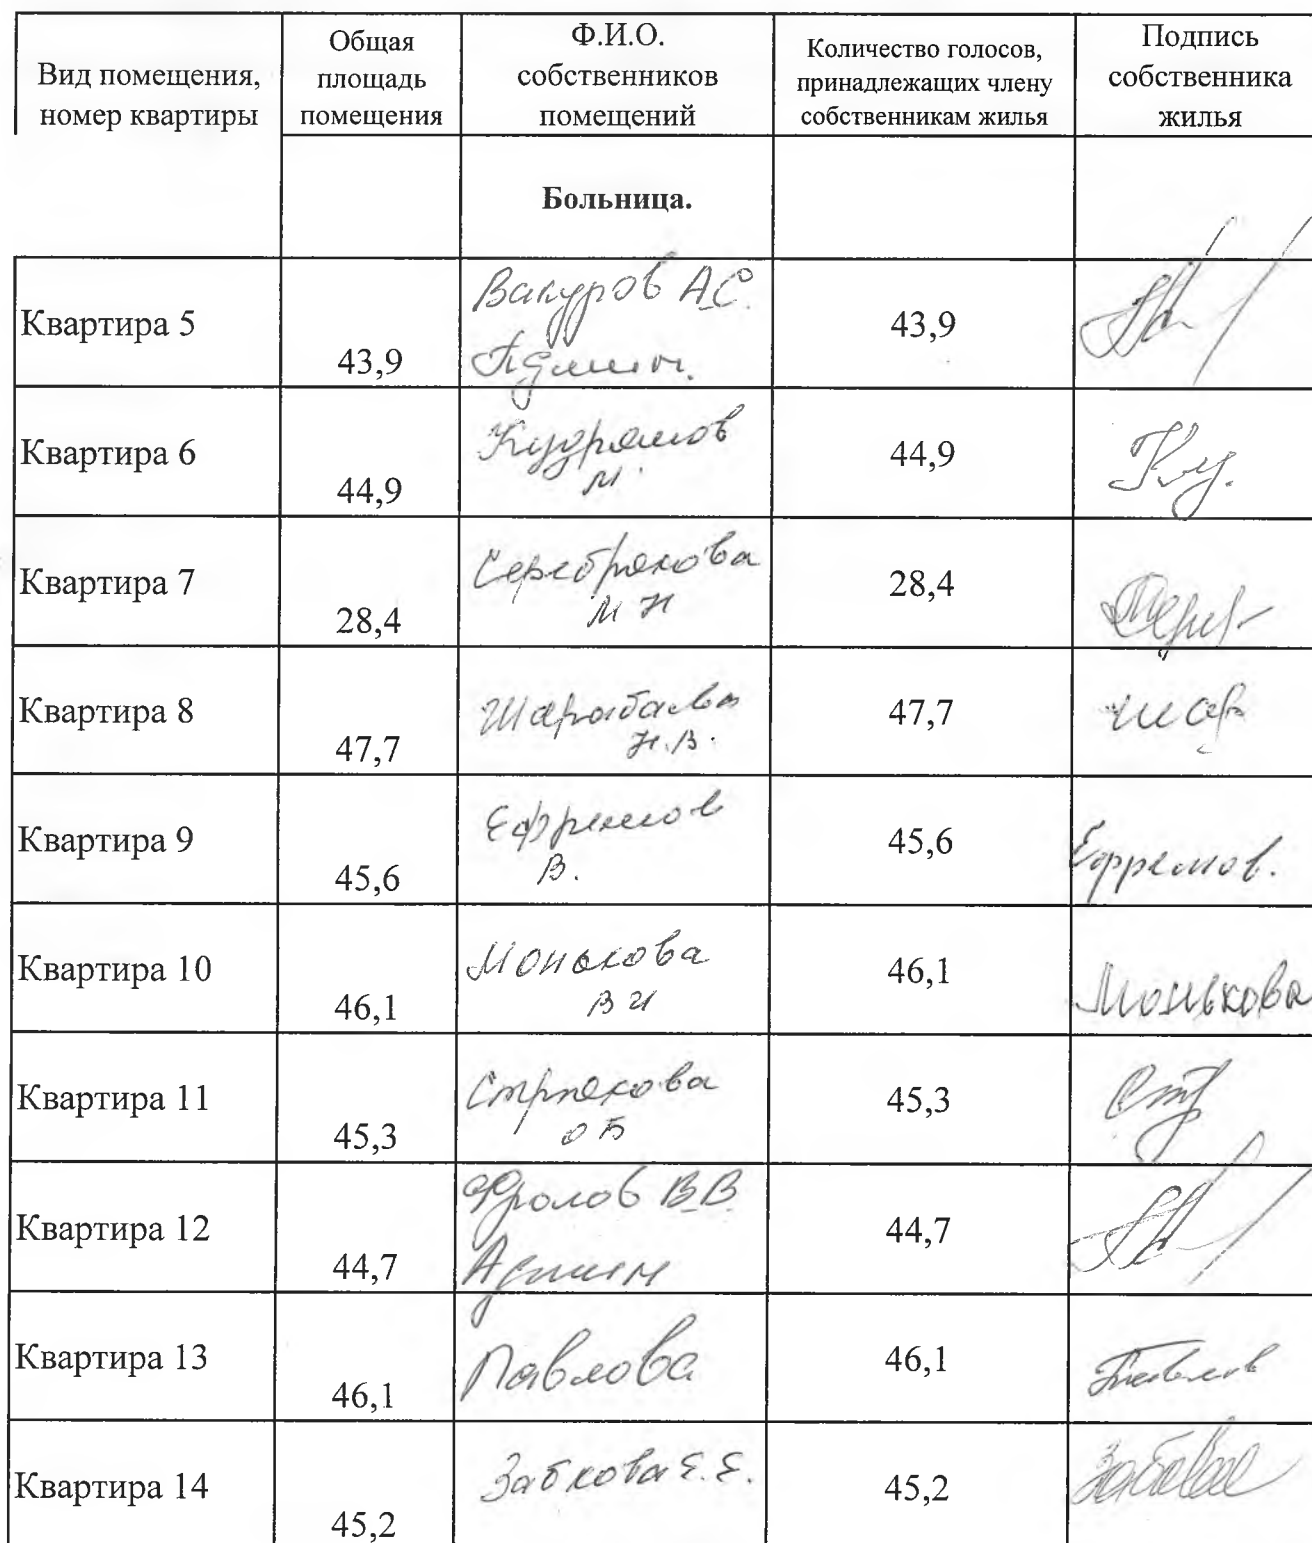 Вид помещения, номер квартиры
Общая площадь помещения
Ф.И.О. собственников помещений
Количество голосов, принадлежащих члену собственникам жилья
Подпись собственника жилья
Больница.
Квартира 5 43,9 Вакуров А.С. Админ. 43,9
Квартира 6 44,9 Кудряшов М. 44,9
Квартира 7 28,4 Серебрякова М Н 28,4
Квартира 8 47,7 Н.В. 47,7 шар
Квартира 9 45,6 Ефремов В. 45,6 Ефремов.
Квартира 10 46,1 Монькова В И 46,1 Монькова
Квартира 11 45,3 О Б 45,3
Квартира 12 44,7 Фролов В.В. Админ 44,7
Квартира 13 46,1 Павлова 46,1
Квартира 14 45,2 Забкова Е.Е. 45,2